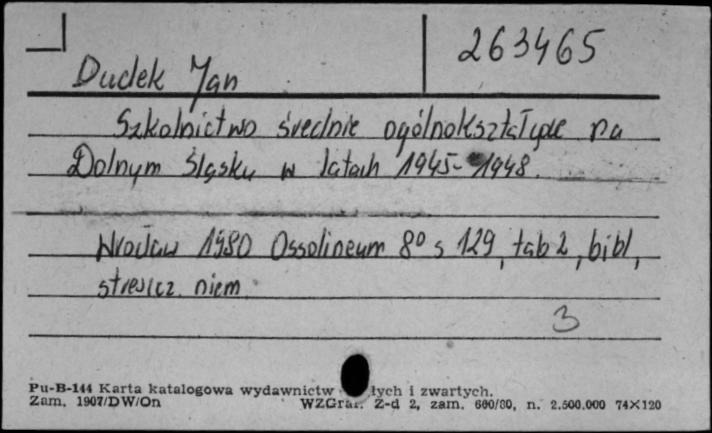 263465
Dudek Jan
Szkolnictwo średnie ogólnokształcące na
Dolnym Śląsku w latach 1945-1948.
Wrocław 1980 Ossolineum 8° s 129, tab 2, bibl,
streszcz. niem.
3
Pu-B-144 Karta katalogowa wydawnictw łych i zwartych.
Zam. 1907/DW/On WZGraf. Z-d 2, zam. 600/80, n. 2.500.000 74×120